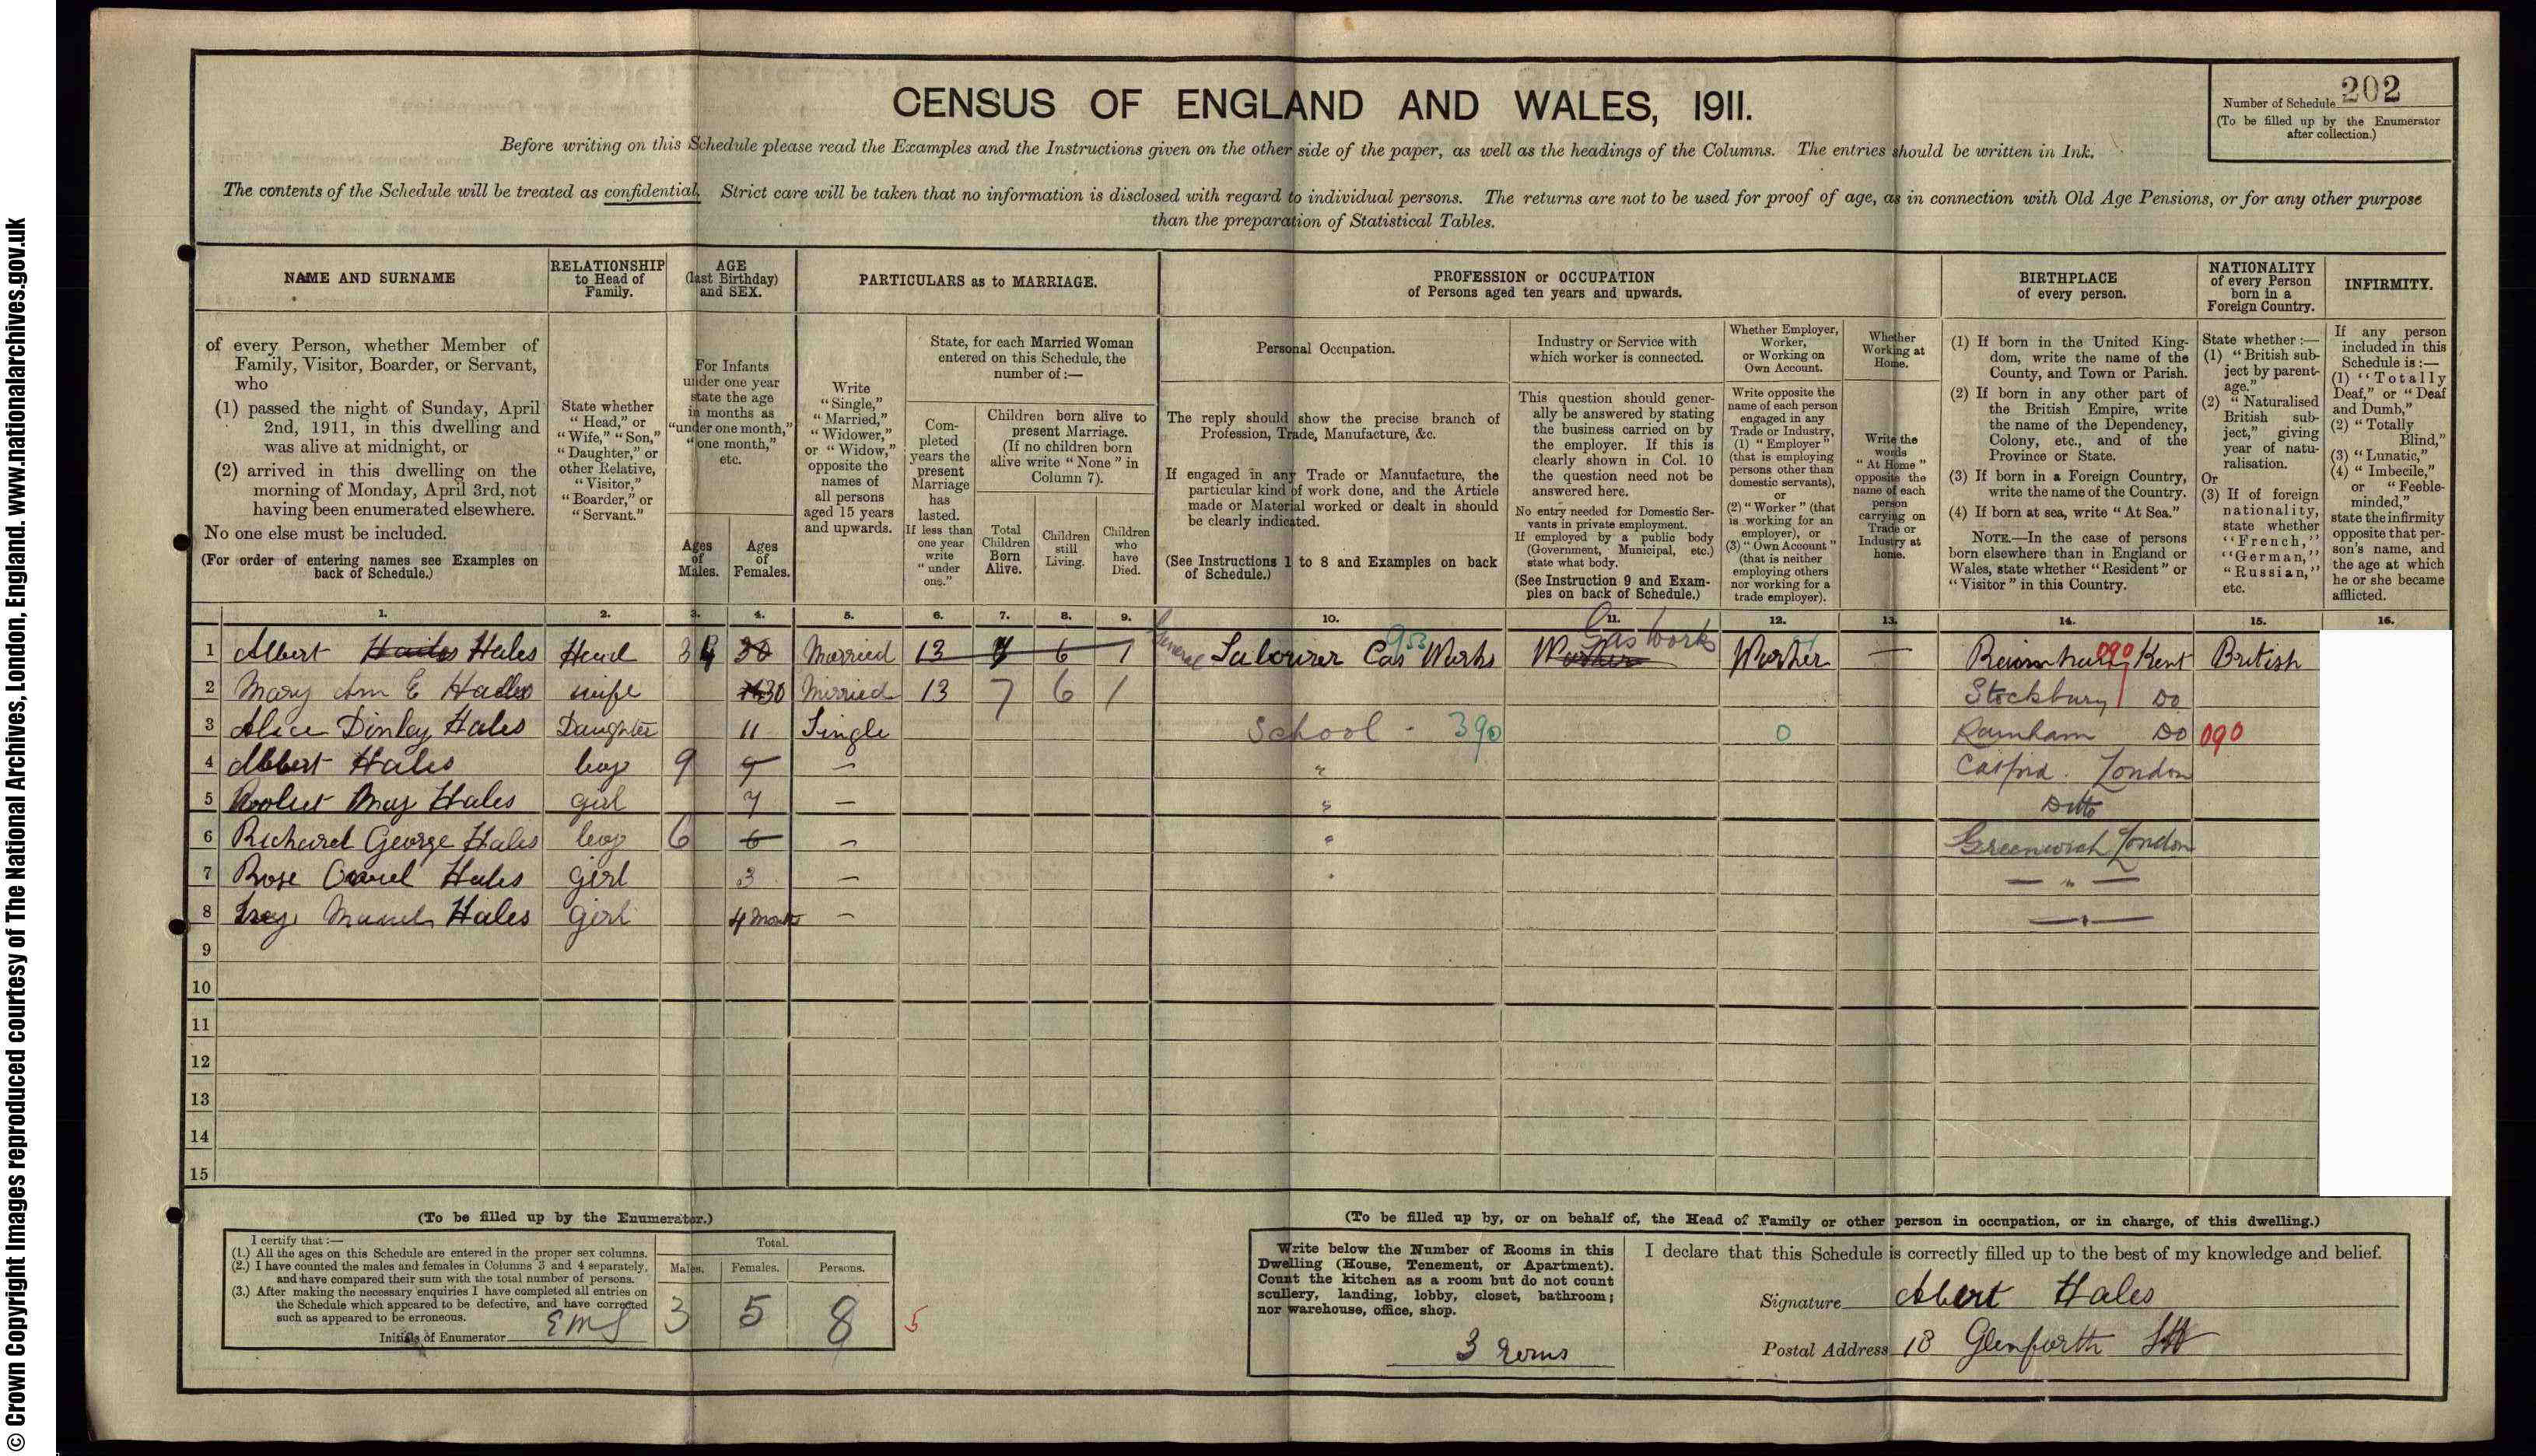 © Crown Copyright Images reproduced courtesy of The National Archives, London, England. www.nationalarchives.gov.uk
CENSUS OF ENGLAND AND WALES, 1911.
Number of Schedule 202
(To be filled up by the Enumerator
after collection.)
Before writing on this Schedule please read the Examples and the Instructions given on the other side of the paper, as well as the headings of the Columns. The entries should be written in Ink.
The contents of the Schedule will be treated as confidential. Strict care will be taken that no information is disclosed with regard to individual persons. The returns are not to be used for proof of age, as in connection with Old Age Pensions, or for any other purpose
than the preparation of Statistical Tables.
NAME AND SURNAME
of every Person, whether Member of
Family, Visitor, Boarder, or Servant,
who
(1) passed the night of Sunday, April
2nd, 1911, in this dwelling and
was alive at midnight, or
(2) arrived in this dwelling on the
morning of Monday, April 3rd, not
having been enumerated elsewhere.
No one else must be included.
(For order of entering names see Examples on
back of Schedule.)
RELATIONSHIP
to Head of
Family.
State whether
"Head," or
"Wife," "Son,"
"Daughter," or
other Relative,
"Visitor,"
"Boarder," or
"Servant."
AGE
(last Birthday)
and SEX.
For Infants
under one year
state the age
in months as
"under one month,"
"one month,"
etc.
Ages
of
Males.
Ages
of
Females.
PARTICULARS as to MARRIAGE.
Write
"Single,"
"Married,"
"Widower,"
or "Widow,"
opposite the
names of
all persons
aged 15 years
and upwards.
State, for each Married Woman
entered on this Schedule, the
number of:—
Com-
pleted
years the
present
Marriage
has
lasted.
If less than
one year
write
"under
one."
Children born alive to
present Marriage.
(If no children born
alive write "None" in
Column 7).
Total
Children
Born
Alive.
Children
still
Living.
Children
who
have
Died.
PROFESSION or OCCUPATION
of Persons aged ten years and upwards.
Personal Occupation.
The reply should show the precise branch of
Profession, Trade, Manufacture, &c.
If engaged in any Trade or Manufacture, the
particular kind of work done, and the Article
made or Material worked or dealt in should
be clearly indicated.
(See Instructions 1 to 8 and Examples on back
of Schedule.)
Industry or Service with
which worker is connected.
This question should gener-
ally be answered by stating
the business carried on by
the employer. If this is
clearly shown in Col. 10
the question need not be
answered here.
No entry needed for Domestic Ser-
vants in private employment.
If employed by a public body
(Government, Municipal, etc.)
state what body.
(See Instruction 9 and Exam-
ples on back of Schedule.)
Whether Employer,
Worker,
or Working on
Own Account.
Write opposite the
name of each person
engaged in any
Trade or Industry,
(1) "Employer"
(that is employing
persons other than
domestic servants),
or
(2) "Worker" (that
is working for an
employer), or
(3) "Own Account"
(that is neither
employing others
nor working for a
trade employer).
Whether
Working at
Home.
Write the
words
"At Home"
opposite the
name of each
person
carrying on
Trade or
Industry at
home.
BIRTHPLACE
of every person.
(1) If born in the United King-
dom, write the name of the
County, and Town or Parish.
(2) If born in any other part of
the British Empire, write
the name of the Dependency,
Colony, etc., and of the
Province or State.
(3) If born in a Foreign Country,
write the name of the Country.
(4) If born at sea, write "At Sea."
NOTE.—In the case of persons
born elsewhere than in England or
Wales, state whether "Resident" or
"Visitor" in this Country.
NATIONALITY
of every Person
born in a
Foreign Country.
State whether:—
(1) "British sub-
ject by parent-
age."
(2) "Naturalised
British sub-
ject," giving
year of natu-
ralisation.
Or
(3) If of foreign
nationality,
state whether
"French,"
"German,"
"Russian,"
etc.
INFIRMITY.
If any person
included in this
Schedule is:—
(1) "Totally
Deaf," or "Deaf
and Dumb,"
(2) "Totally
Blind,"
(3) "Lunatic,"
(4) "Imbecile,"
or "Feeble-
minded,"
state the infirmity
opposite that per-
son's name, and
the age at which
he or she became
afflicted.
1. 2. 3. 4. 5. 6. 7. 8. 9. 10. 11. 12. 13. 14. 15. 16.
1 Albert Hales Head 30 Married 13 7 6 1 General Labourer Gas Works 953 Gas Works Worker — 090 Kent British
2 Mary Ann E Hales wife 30 Married 13 7 6 1 Stockbury Do
3 Alice Dinley Hales Daughter 11 Single School - 390 0 Rainham Do 090
4 Albert Hales boy 9 9 — " Catford. London
5 May Hales girl 7 — " Ditto
6 Richard George Hales boy 6 6 — " Greenwich London
7 Rose Hales girl 3 — " — " —
8 Hales girl 4 months — — " —
9
10
11
12
13
14
15
(To be filled up by the Enumerator.)
I certify that:—
(1.) All the ages on this Schedule are entered in the proper sex columns.
(2.) I have counted the males and females in Columns 3 and 4 separately,
and have compared their sum with the total number of persons.
(3.) After making the necessary enquiries I have completed all entries on
the Schedule which appeared to be defective, and have corrected
such as appeared to be erroneous.
Initials of Enumerator EMS
Total.
Males. Females. Persons.
3 5 8 5
(To be filled up by, or on behalf of, the Head of Family or other person in occupation, or in charge, of this dwelling.)
Write below the Number of Rooms in this
Dwelling (House, Tenement, or Apartment).
Count the kitchen as a room but do not count
scullery, landing, lobby, closet, bathroom;
nor warehouse, office, shop.
3 rooms
I declare that this Schedule is correctly filled up to the best of my knowledge and belief.
Signature Albert Hales
Postal Address 18 Glenforth St